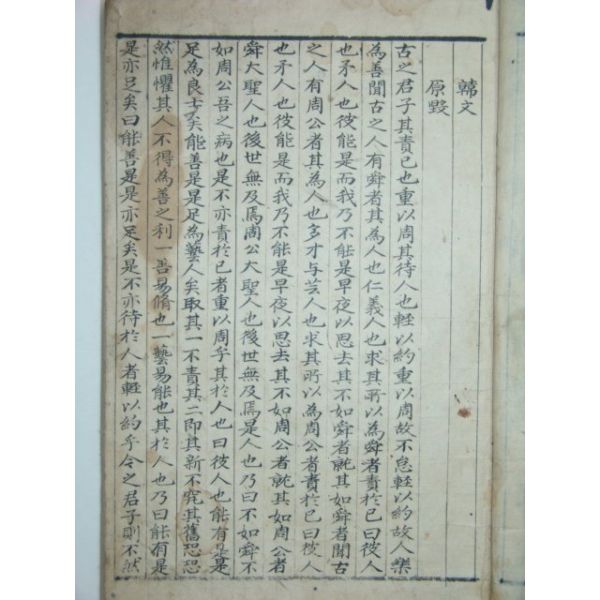 韓文
原毀
古之君子其責己也重以周其待人也輕以約重以周故不怠輕以約故人樂
為善聞古之人有舜者其為人也仁義人也求其所以為舜者責於己曰彼人
也矛人也彼能是而我乃不能是早夜以思去其不如舜者就其如舜者聞古
之人有周公者其為人也多才与芸人也求其所以為周公者責於己曰彼人
也矛人也彼能是而我乃不能是早夜以思去其不如周公者就其如周公者
舜大聖人也後世無及焉周公大聖人也後世無及焉是人也乃曰不如舜不
如周公吾之病也是不亦責於己者重以周乎其於人也曰彼人也能有是是
足為良士矣能善是是足為藝人矣取其一不責其二即其新不究其舊恐恐
然惟懼其人不得為善之利一善易脩也一藝易能也其於人也乃曰能有是
是亦足矣曰能善是是亦足矣是不亦待於人者輕以約乎今之君子則不然